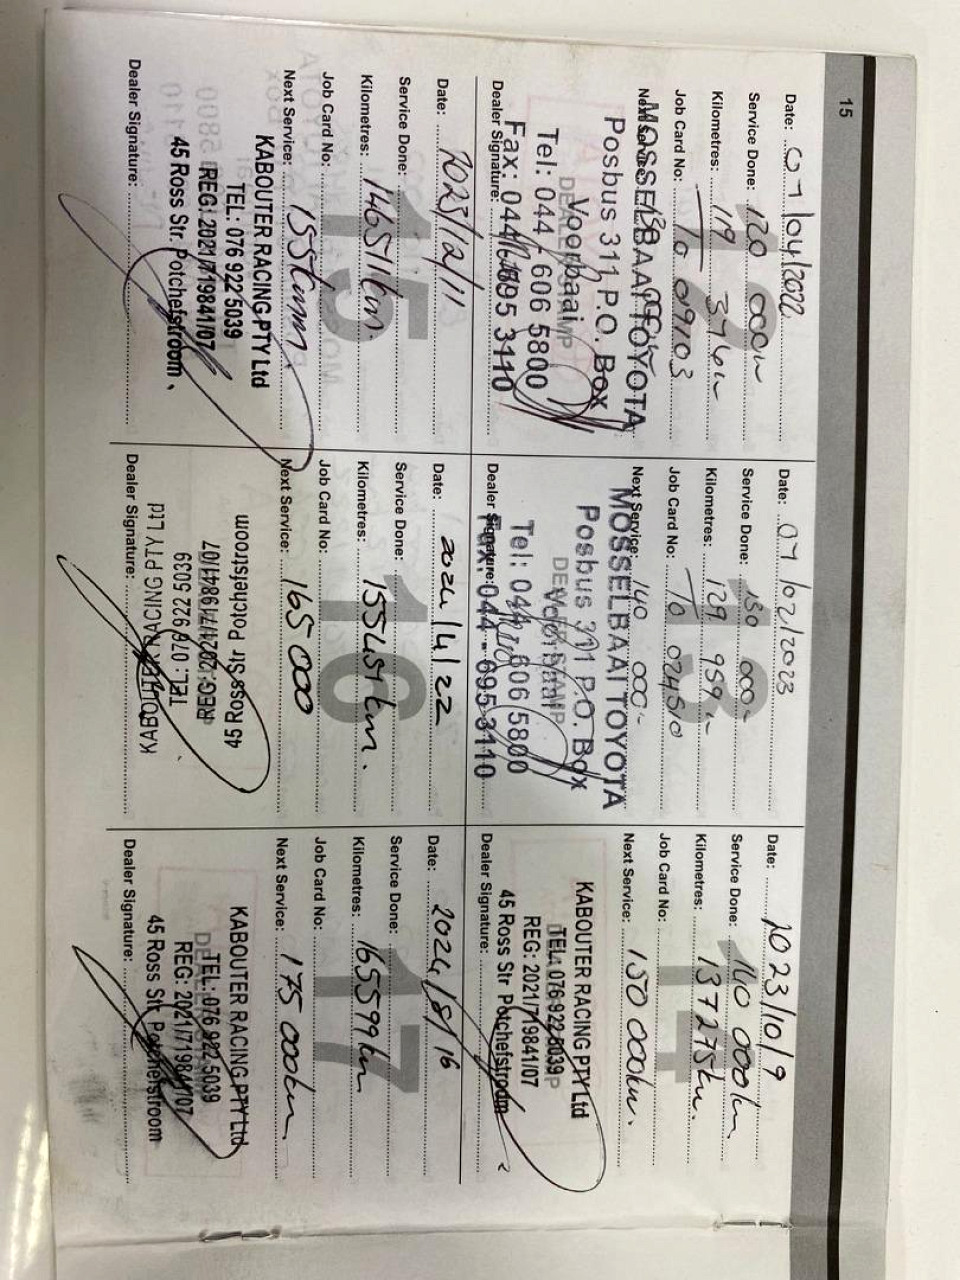 15
12
Date: 07/04/2022
Service Done: 120 000km
Kilometres: 119 376km
Job Card No: 09103
Next Service: 130 000km
MOSSELBAAI TOYOTA
Posbus 311 P.O. Box
Voorbaai
DEALER STAMP
Tel: 044 606 5800
Fax: 044 695 3110
Dealer Signature:
13
Date: 07/02/2023
Service Done: 130 000
Kilometres: 129 959
Job Card No: 02450
Next Service: 140 000
MOSSELBAAI TOYOTA
Posbus 311 P.O. Box
Voorbaai
DEALER STAMP
Tel: 044 606 5800
Fax: 044 - 695 3110
Dealer Signature:
14
Date: 2023/10/9
Service Done: 140 000km
Kilometres: 137275km.
Job Card No:
Next Service: 150 000km.
KABOUTER RACING PTY Ltd
TEL: 076 922 5039
REG: 2021/719841/07
45 Ross Str Potchefstroom
Dealer Signature:
15
Date: 2023/12/11
Service Done:
Kilometres: 146511km.
Job Card No:
Next Service: 155
KABOUTER RACING PTY Ltd
TEL: 076 922 5039
REG: 2021/719841/07
45 Ross Str. Potchefstroom
Dealer Signature:
16
Date: 2024/4/22
Service Done:
Kilometres: 155451km.
Job Card No:
Next Service: 165 000
KABOUTER RACING PTY Ltd
TEL: 076 922 5039
REG: 2021/719841/07
45 Ross Str Potchefstroom
Dealer Signature:
17
Date: 2024/8/16
Service Done:
Kilometres: 165599km
Job Card No:
Next Service: 175 000km
KABOUTER RACING PTY Ltd
TEL: 076 922 5039
REG: 2021/719841/07
45 Ross Str Potchefstroom
Dealer Signature: